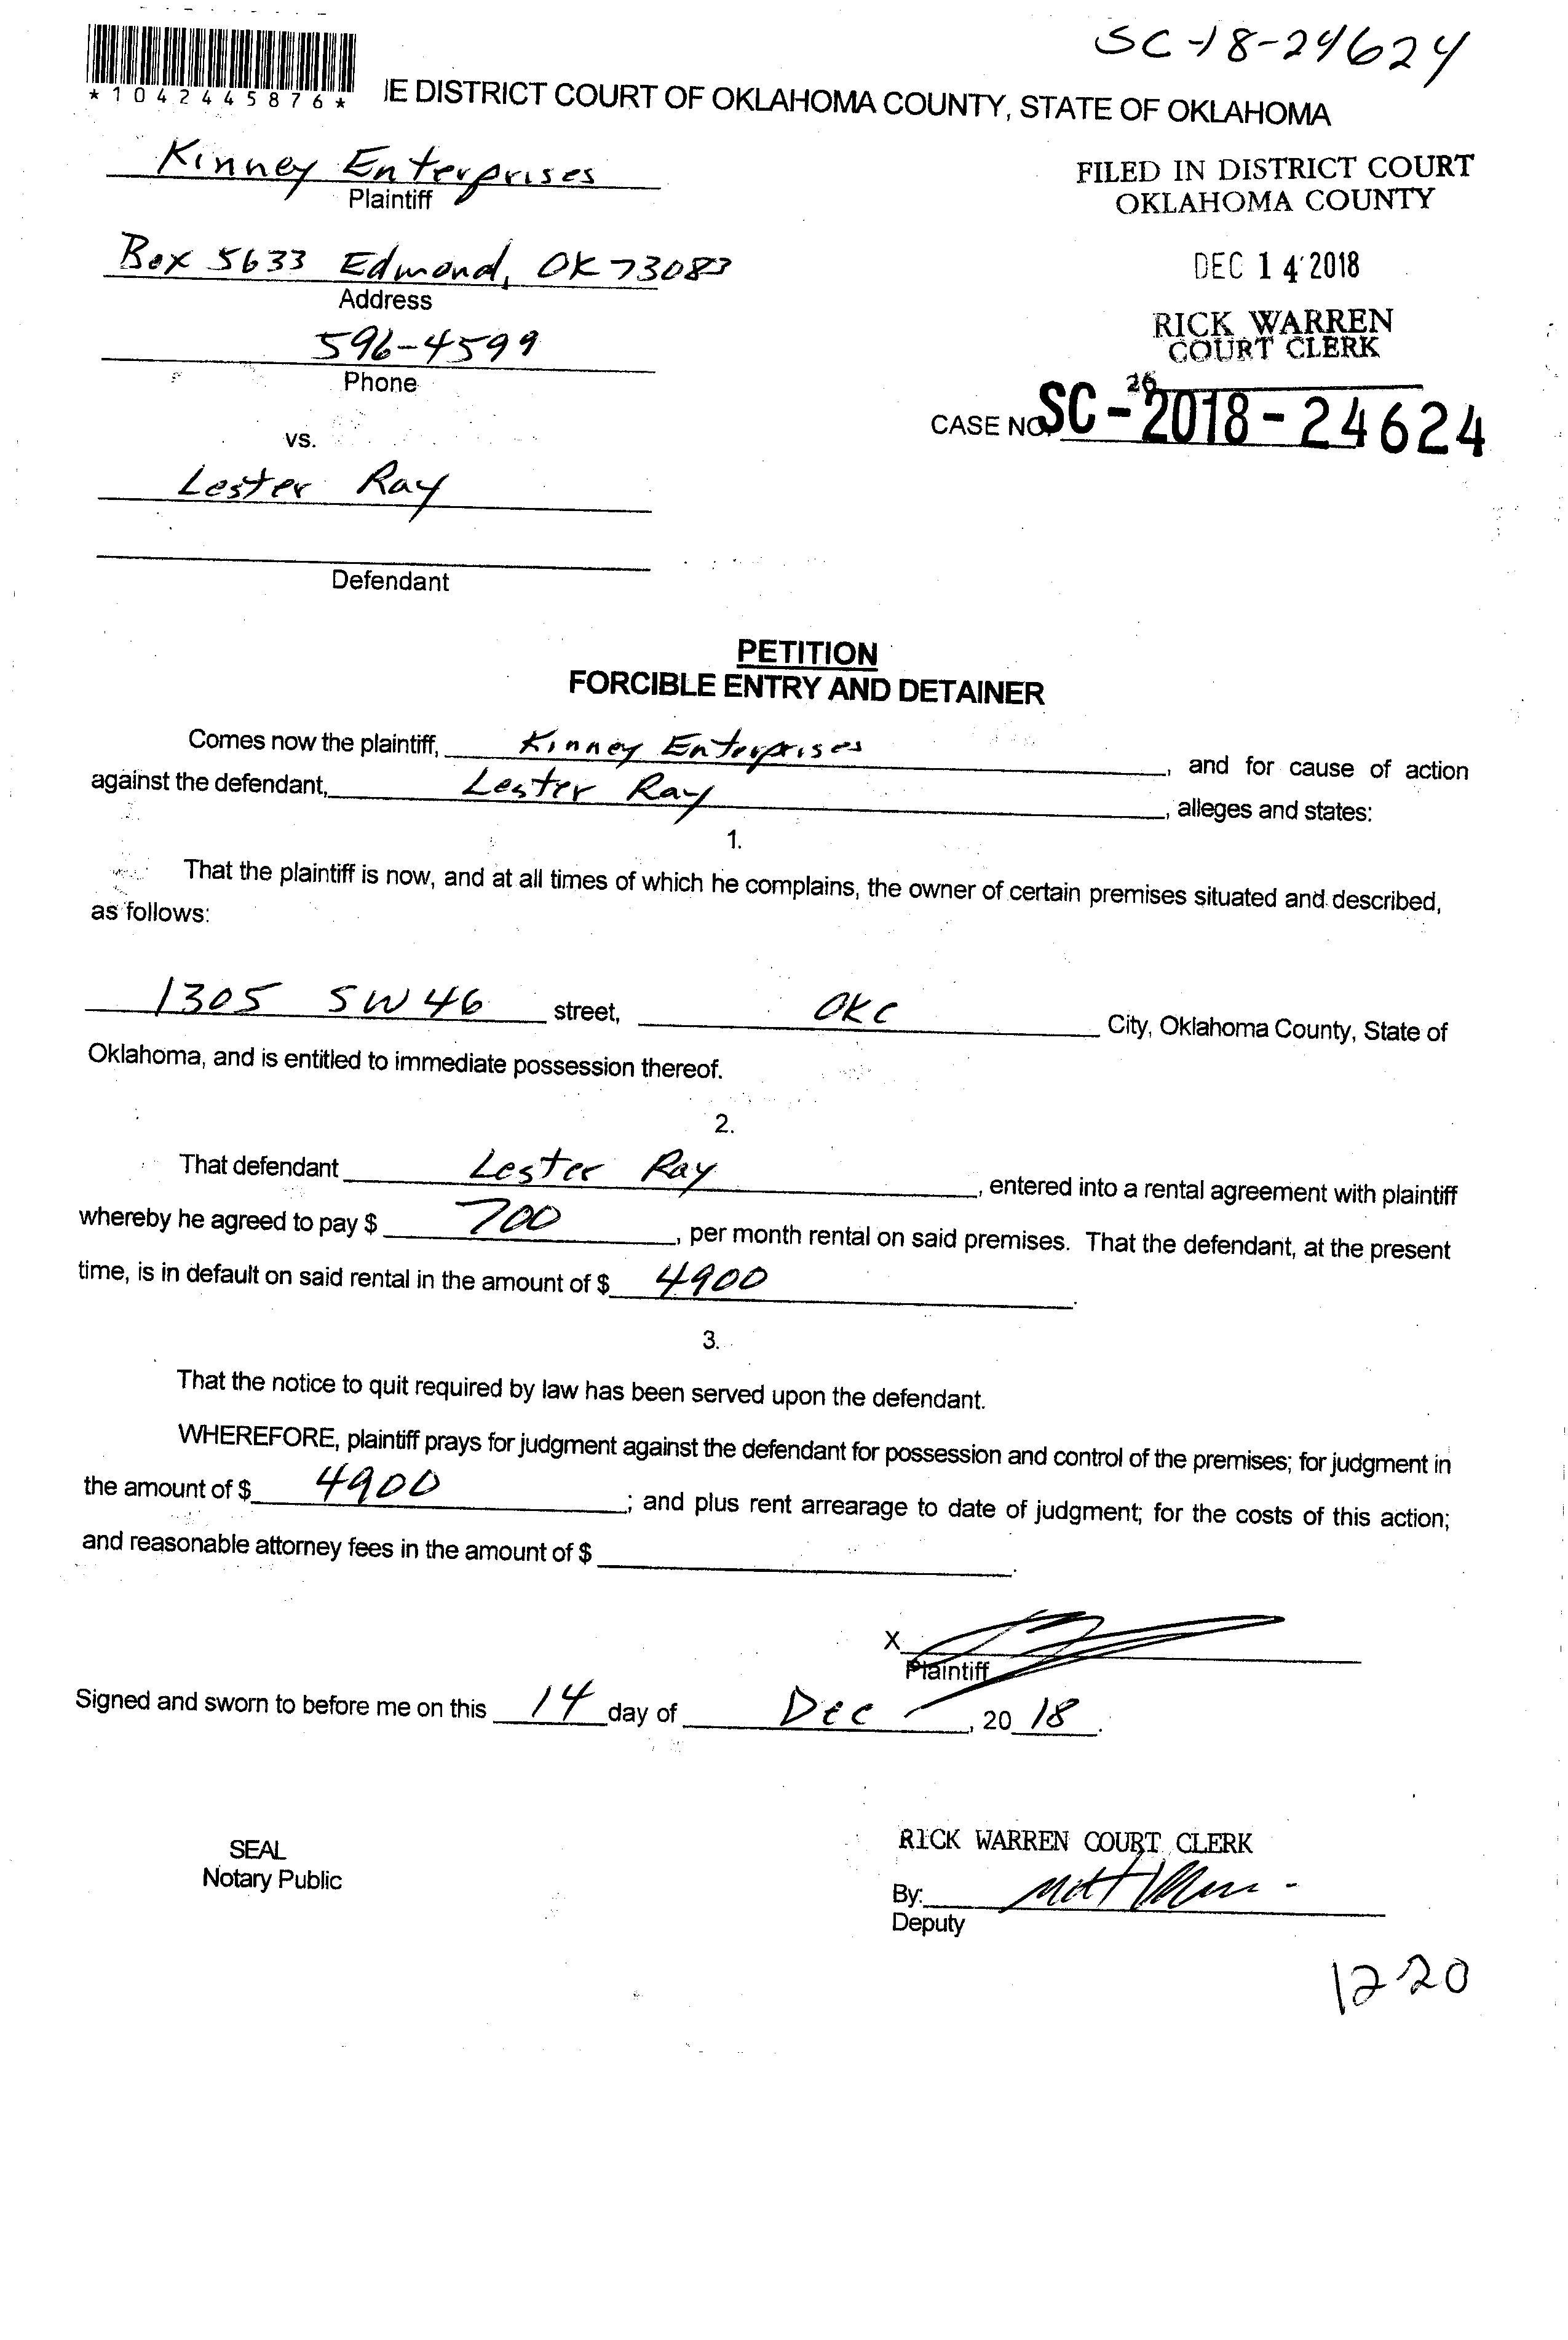 SC-18-24624
*1042445876*
IE DISTRICT COURT OF OKLAHOMA COUNTY, STATE OF OKLAHOMA
Kinney Enterprises
Plaintiff
FILED IN DISTRICT COURT
OKLAHOMA COUNTY
Box 5633 Edmond, OK 73083
Address
DEC 14 2018
596-4599
Phone
RICK WARREN
COURT CLERK
26
CASE NO. SC-2018-24624
vs.
Lester Ray
Defendant
PETITION
FORCIBLE ENTRY AND DETAINER
Comes now the plaintiff, Kinney Enterprises, and for cause of action
against the defendant, Lester Ray, alleges and states:
1.
That the plaintiff is now, and at all times of which he complains, the owner of certain premises situated and described,
as follows:
1305 SW 46 street, OKC City, Oklahoma County, State of
Oklahoma, and is entitled to immediate possession thereof.
2.
That defendant Lester Ray, entered into a rental agreement with plaintiff
whereby he agreed to pay $ 700, per month rental on said premises. That the defendant, at the present
time, is in default on said rental in the amount of $ 4900.
3.
That the notice to quit required by law has been served upon the defendant.
WHEREFORE, plaintiff prays for judgment against the defendant for possession and control of the premises; for judgment in
the amount of $ 4900; and plus rent arrearage to date of judgment; for the costs of this action;
and reasonable attorney fees in the amount of $ .
X
Plaintiff
Signed and sworn to before me on this 14 day of Dec, 20 18.
SEAL
Notary Public
RICK WARREN COURT CLERK
By:
Deputy
1220